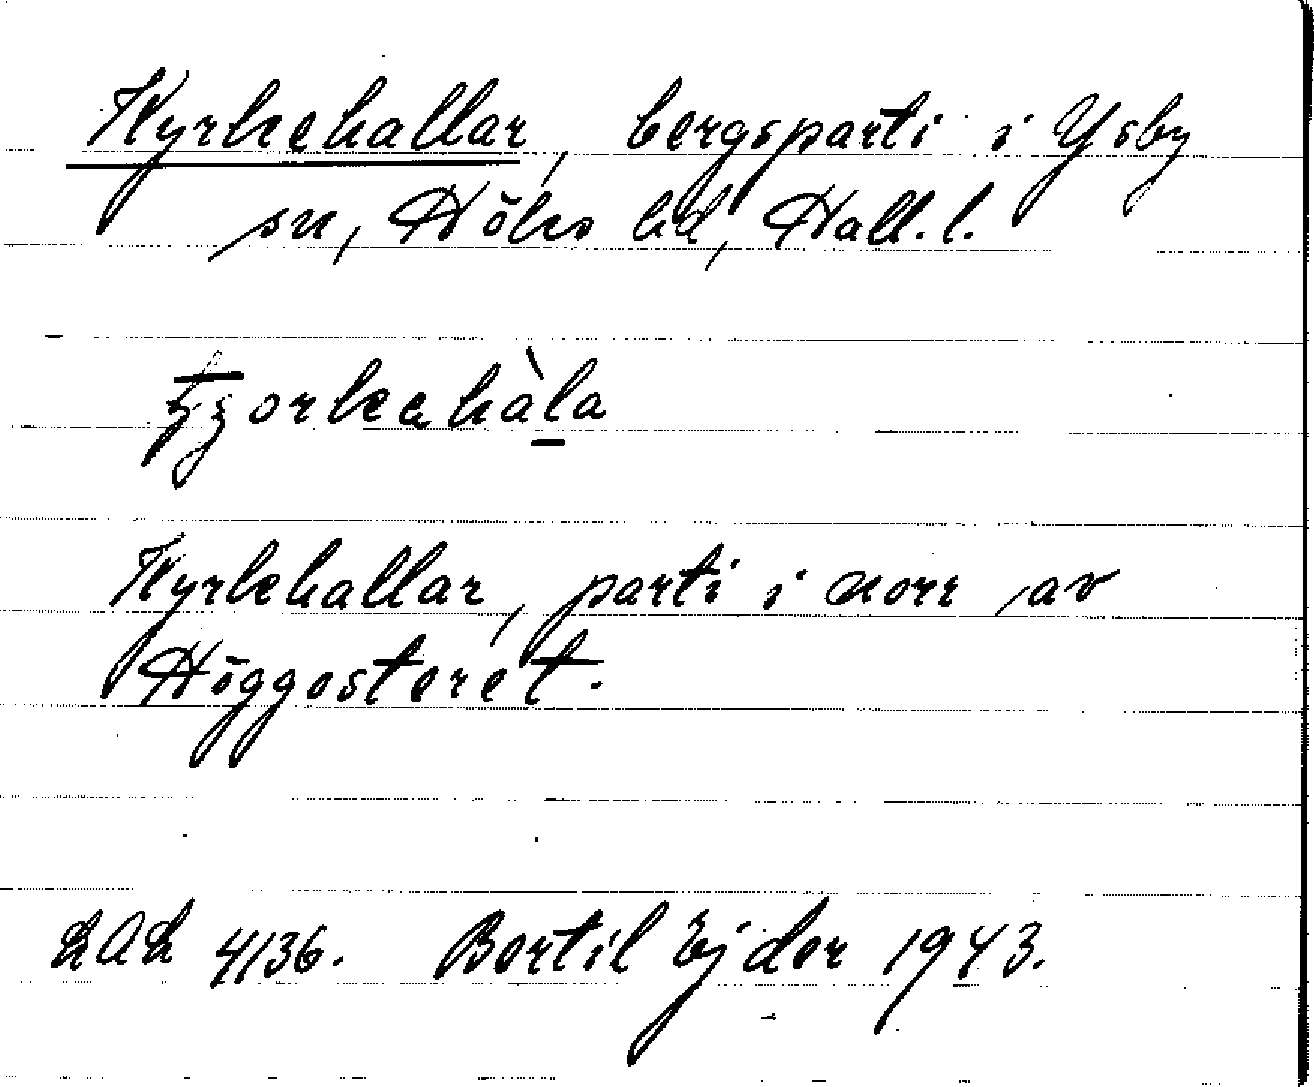 Kyrkehallar, bergsparti i Ysby
sn, Höks hd, Hall. l.
Kyrkehallar, parti i norr av
Höggosteret.
LAL 4136. Bertil Ejder 1943.